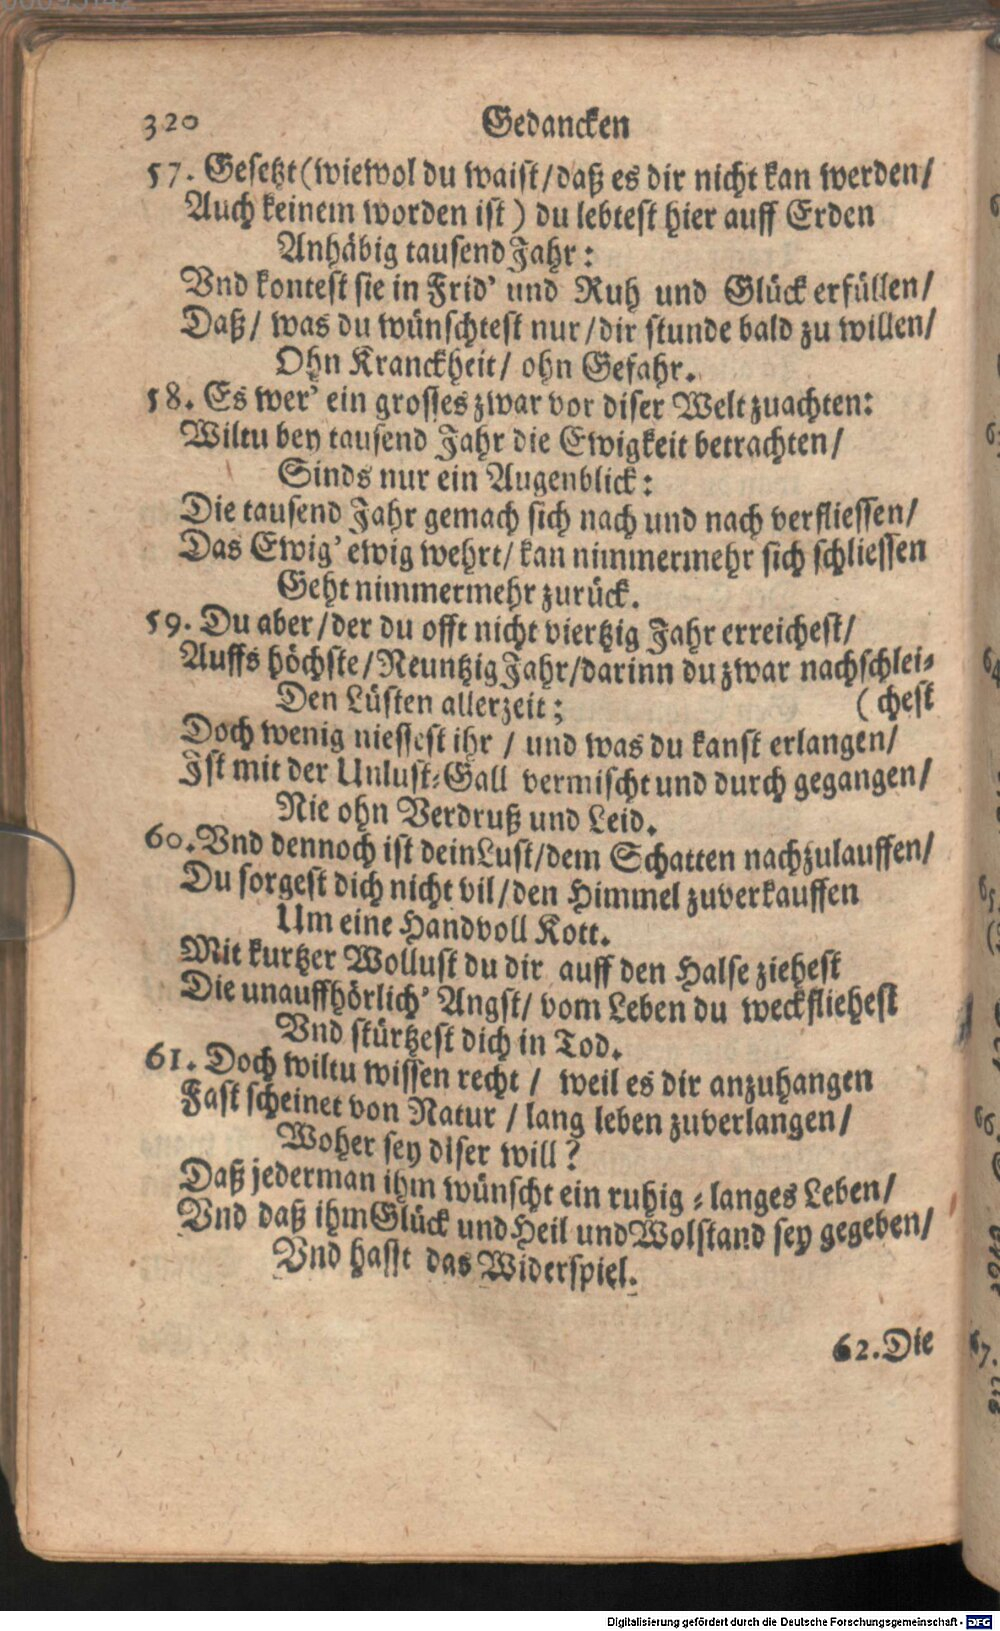 320 Gedancken
57. Gesetzt (wiewol du waist / daß es dir nicht kan werden /
Auch keinem worden ist ) du lebtest hier auff Erden
Anhäbig tausend Jahr :
Vnd kontest sie in Frid' und Ruh und Glück erfüllen /
Daß / was du wünschtest nur / dir stunde bald zu willen /
Ohn Kranckheit / ohn Gefahr.
58. Es wer' ein grosses zwar vor diser Welt zuachten:
Wiltu bey tausend Jahr die Ewigkeit betrachten /
Sinds nur ein Augenblick :
Die tausend Jahr gemach sich nach und nach verfliessen /
Das Ewig' ewig wehrt / kan nimmermehr sich schliessen
Geht nimmermehr zurück.
59. Du aber / der du offt nicht viertzig Jahr erreichest /
Auffs höchste / Neuntzig Jahr / darinn du zwar nachschlei-
Den Lüsten allerzeit ; ( chest
Doch wenig niessest ihr / und was du kanst erlangen /
Ist mit der Unlust-Gall vermischt und durch gegangen /
Nie ohn Verdruß und Leid.
60. Vnd dennoch ist dein Lust / dem Schatten nachzulauffen /
Du sorgest dich nicht vil / den Himmel zuverkauffen
Um eine Handvoll Kott.
Mit kurtzer Wollust du dir auff den Halse ziehest
Die unauffhörlich' Angst / vom Leben du weckfliehest
Vnd stürtzest dich in Tod.
61. Doch wiltu wissen recht / weil es dir anzuhangen
Fast scheinet von Natur / lang leben zuverlangen /
Woher sey diser will ?
Daß jederman ihm wünscht ein ruhig - langes Leben /
Vnd daß ihm Glück und Heil und Wolstand sey gegeben /
Vnd hasst das Widerspiel.
62. Die
Digitalisierung gefördert durch die Deutsche Forschungsgemeinschaft - DFG